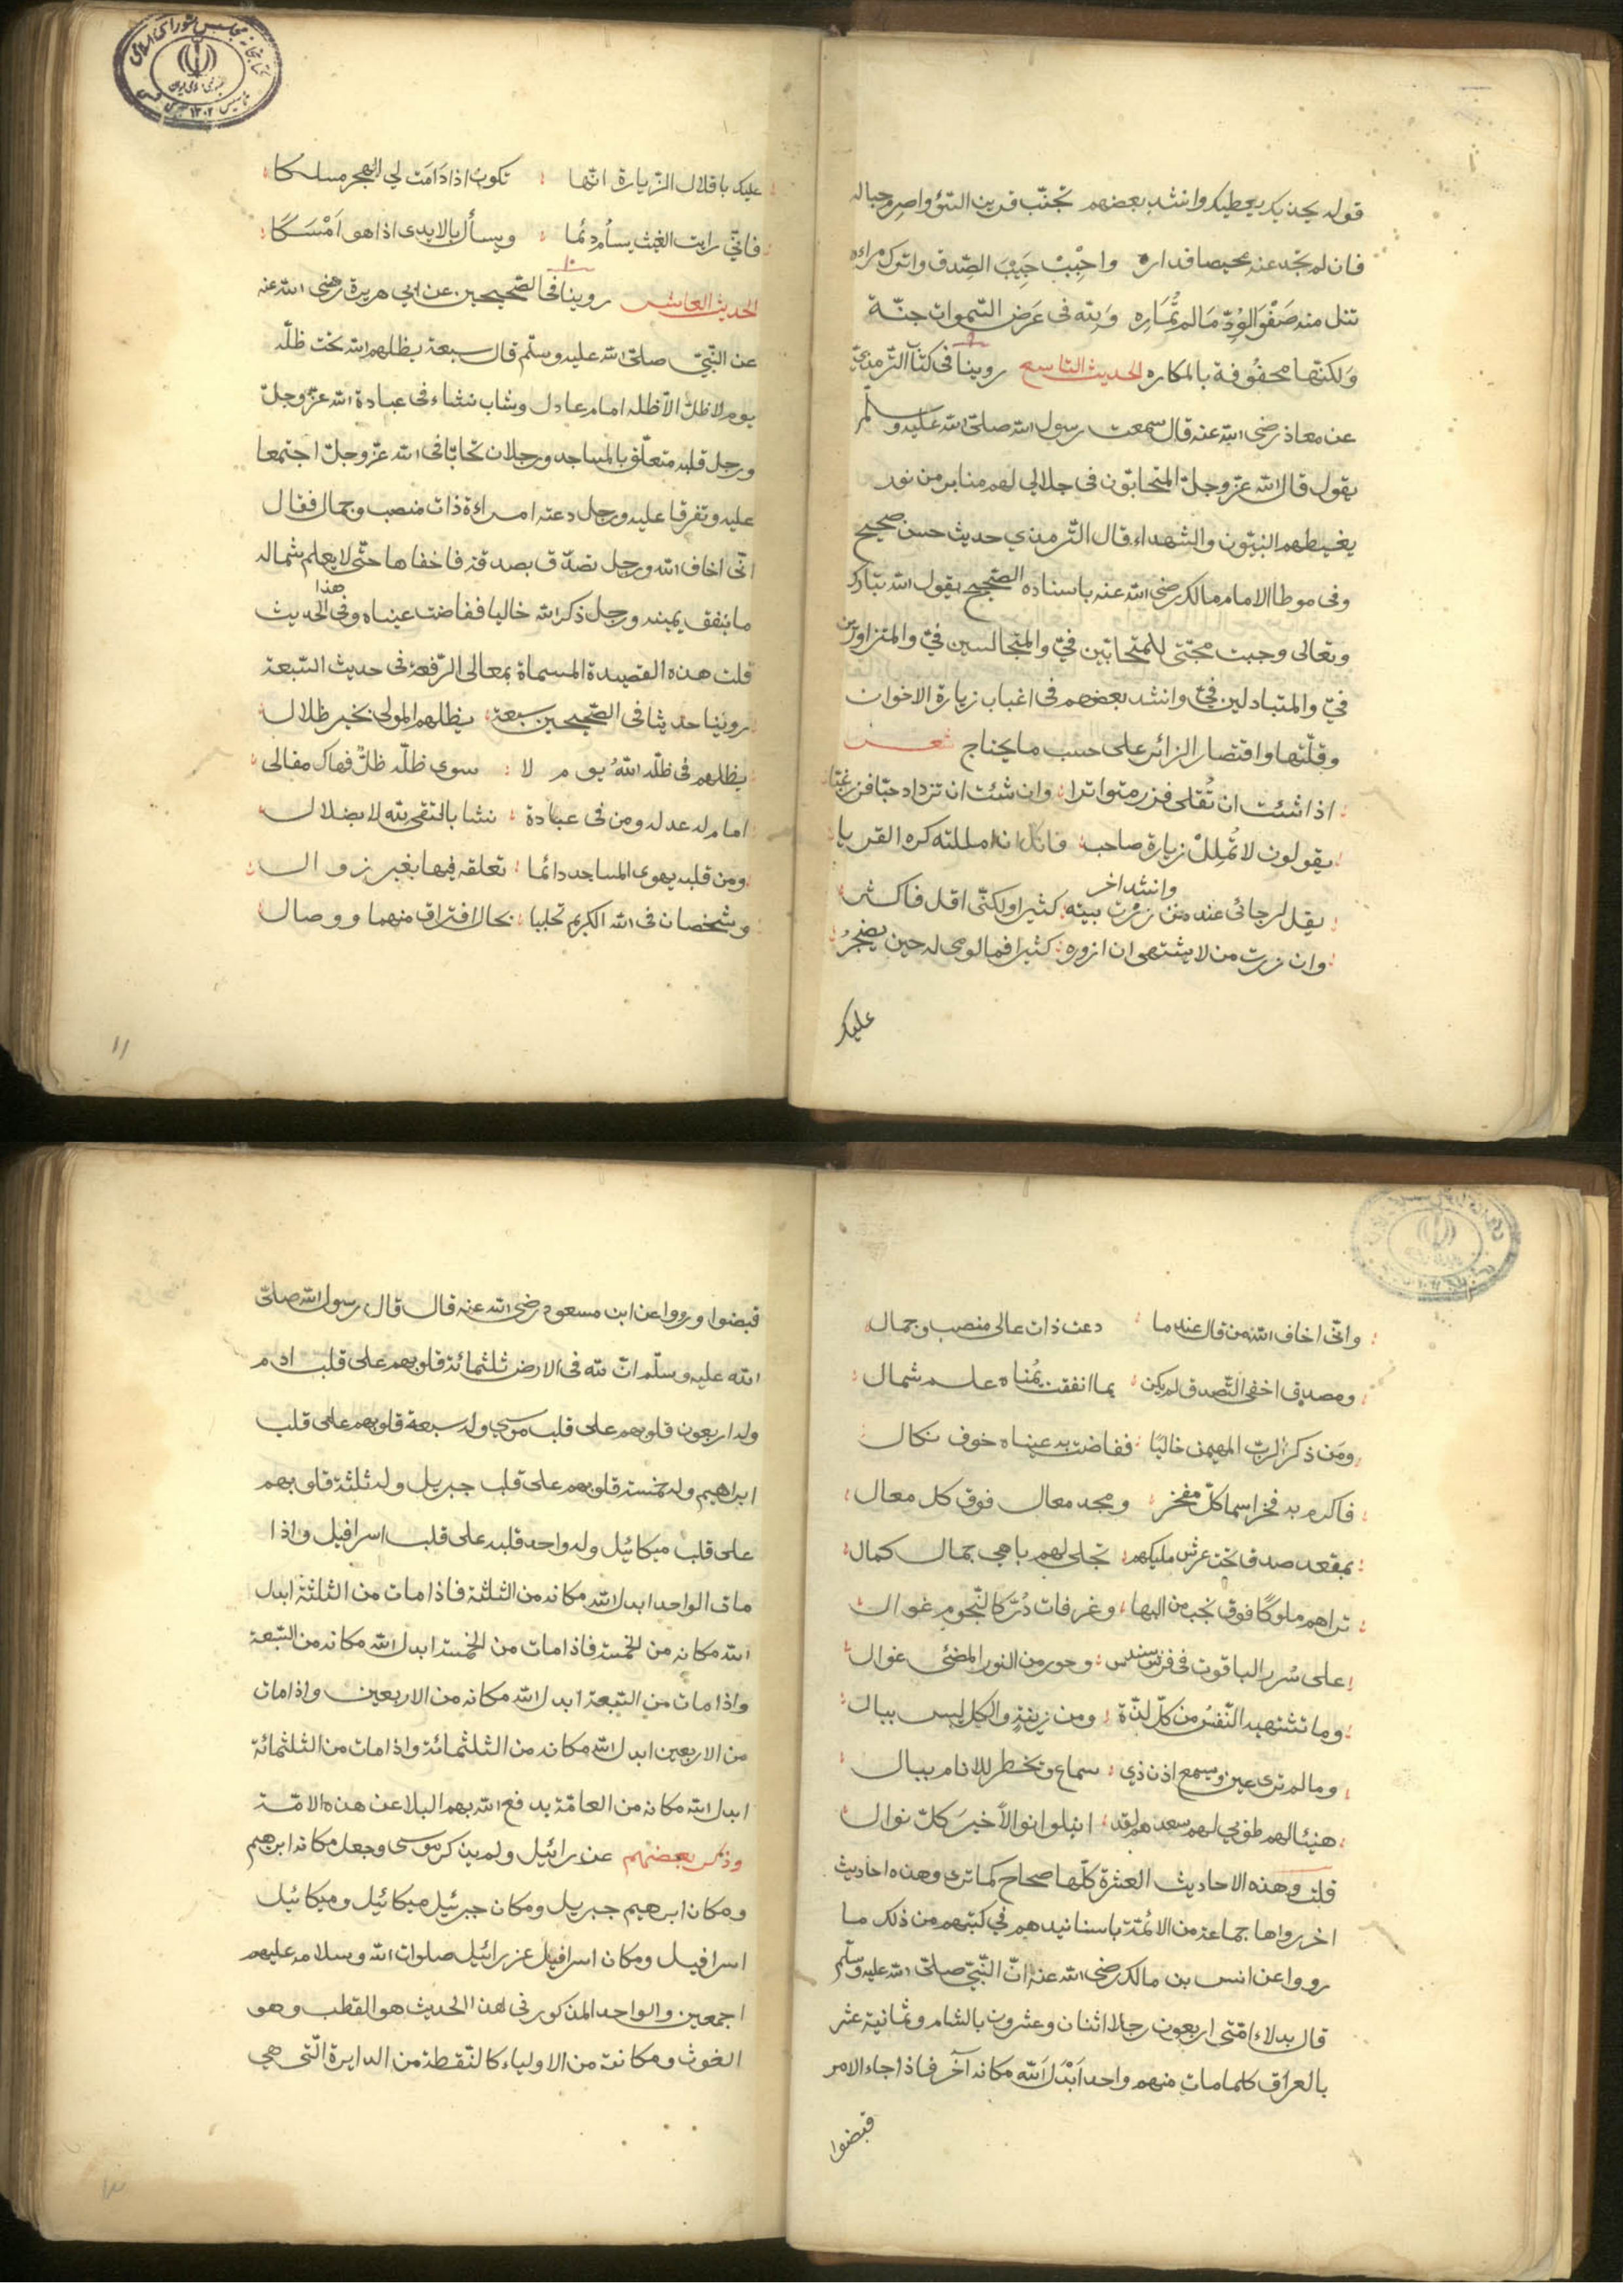 قوله يحذيك يعطيك وانشد بعضهم تجنّب قرين السّوء واصرم حباله
فان لم تجد عنه محيصا فداره واحْبِبْ حَبِيْبَ الصّدق واترك مراءه
تنل منه صَفْوَ الوُدّ مَا لم تُمَاره وَلله فى عَرَض السّموات جنّة
وَلكنّها محفُوفة بالمكاره الحديث التاسع روينا فى كتاب الترمذيّ
عن معاذ رضى الله عنه قال سمعت رسول الله صلى الله عليه وسلّم
يقول قال الله عزّ وجلّ المتحابّون فى جلالي لهم منابر من نور
يغبطهم النبيّون والشهداء قال التّرمذي حديث حسن صحيح
وفى موطا الامام مالك رضى الله عنه باسناده الصّحيح يقول الله تبارك
وتعالى وجبت محبّتى للمتحابّين فيّ والمتجالسين فيّ والمتزاورين
فيّ والمتباذلين فيّ وانشد بعضهم فى اغباب زيارة الاخوان
وقلّتها واقتصار الزائر على حسب ما يحتاج شعر
اذا شئت ان تُقلى فزر متواترا وان شئت ان تزداد حبّا فزر غبّا
يقولون لا تُمْلِلْ زيارة صاحب فانك ان امللته كره القربا
وانشد اخر
يقل لرجائى عند من زرت بيته كثيرا ولكنّى اقل فاكثر
وان زرت من لا يشتهى ان ازوره كثيرا فما لومى له حين يضجرُ
عليك
عليك باقلال الزّيارة انّها تكون اذا دَامَت الي الهجر مسلكا
فانّي رايت الغيث يسأم دئما ويسأل بالايدى اذا هو اَمْسَكَا
١٠
الحديث العاشر روينا فى الصّحيحين عن ابي هريرة رضى الله عنه
عن النّبيّ صلّى الله عليه وسلّم قال سبعة يظلهم الله تحت ظلّه
يوم لا ظلّ الّا ظله امام عادل وشاب نشاء فى عبادة الله عزّ وجلّ
ورجل قلبه متعلّق بالمساجد ورجلان تحابّا فى الله عزّ وجلّ اجتمعا
عليه وتفرقا عليه ورجل دعته امراءة ذات منصب وجمال فقال
انّى اخاف الله ورجل تصدّق بصدقة فاخفاها حتّى لا يعلم شماله
هذا
ما ينفق يمينه ورجل ذكر الله خاليا ففاضت عيناه وفى الحديث
قلت هذه القصيدة المسماة بمعالى الرّفعة فى حديث السّبعة
روينا حديثا فى الصّحيحين سبعة يظلهم المولى بخير ظلال
يظلهم فى ظلّه اللهُ يوم لا سوى ظلّه ظلٌّ فهاك مقالى
امام له عدل ومن فى عبادة نشا بالتقى لله لا بضلال
ومن قلبه يهوى المساجد دائما تعلقه فيها بغير زوال
وشخصان فى الله الكريم تحابيا بحال افتراق منهما ووصال
١١
وانّى اخاف الله من قال عند ما دعت ذات عالى منصب وجمال
ومصدق اخفى التّصدق لم يكن بما انفقت يُمناه علم شمال
ومَن ذكر الربّ المهيمن خاليًا ففاضت به عيناه خوف نكال
فاكرم به فخرا سما كلّ مفخر ومجد معال فوق كل معال
بمقعد صدق تحت عرش مليكهم تجلى لهم باهى جمال كمال
تراهم ملوكًا فوق نجب من البها وغرفات دُرّ كالنّجوم غوال
على سُرر الياقوت فى فرش سندس وحور من النور المضئى غوال
وما تشتهيه النّفسُ من كلّ لذّة ومن زينة والكل ليس ببال
وما لم ترى عين ويسمع اذن ذي سماع وتخطر للانام ببال
هنيئا لهم طوبي لهم سعد هم لقد انيلوا نوالاً خيرَ كلّ نوال
قلت وهذه الاحاديث العشرة كلّها صحاح كما ترى وهذه احاديث
اخر رواها جماعة من الائمّة باسانيدهم في كتبهم من ذلك ما
رووا عن انس بن مالك رضى الله عنه انّ النّبيّ صلّى الله عليه وسلّم
قال بدلاء امّتى اربعون رجلا اثنان وعشرون بالشام وثمانية عشر
بالعراق كلما مات منهم واحد اَبْدَلَ الله مكانه آخر فاذا جاء الامر
قبضوا
قبضوا ورووا عن ابن مسعود رضى الله عنه قال قال رسول الله صلّى
الله عليه وسلّم انّ لله فى الارض ثلثمائة قلوبهم على قلب ادم
وله اربعون قلوبهم على قلب موسي وله سبعة قلوبهم على قلب
ابراهيم وله خمسة قلوبهم على قلب جبريل وله ثلثة قلوبهم
على قلب ميكائيل وله واحد قلبه على قلب اسرافيل واذا
مات الواحد ابدل الله مكانه من الثلثة فاذا مات من الثلثة ابدل
الله مكانه من الخمسة فاذا مات من الخمسة ابدل الله مكانه من السّبعة
واذا مات من السّبعة ابدل الله مكانه من الاربعين واذا مات
من الاربعين ابدل الله مكانه من الثلثمائة واذا مات من الثلثمائة
ابدل الله مكانه من العامّة يدفع الله بهم البلا عن هذه الامّة
وذكر بعضهم عزرائيل ولم يذكر موسى وجعل مكانه ابرهيم
ومكان ابرهيم جبريل ومكان جبرئيل ميكائيل وميكائيل
اسرافيل ومكان اسرافيل عزرائيل صلوات الله وسلامه عليهم
اجمعين والواحد المذكور فى هذا الحديث هو القطب وهو
الغوث ومكانته من الاولياء كالنّقطة من الدايرة الّتى هي